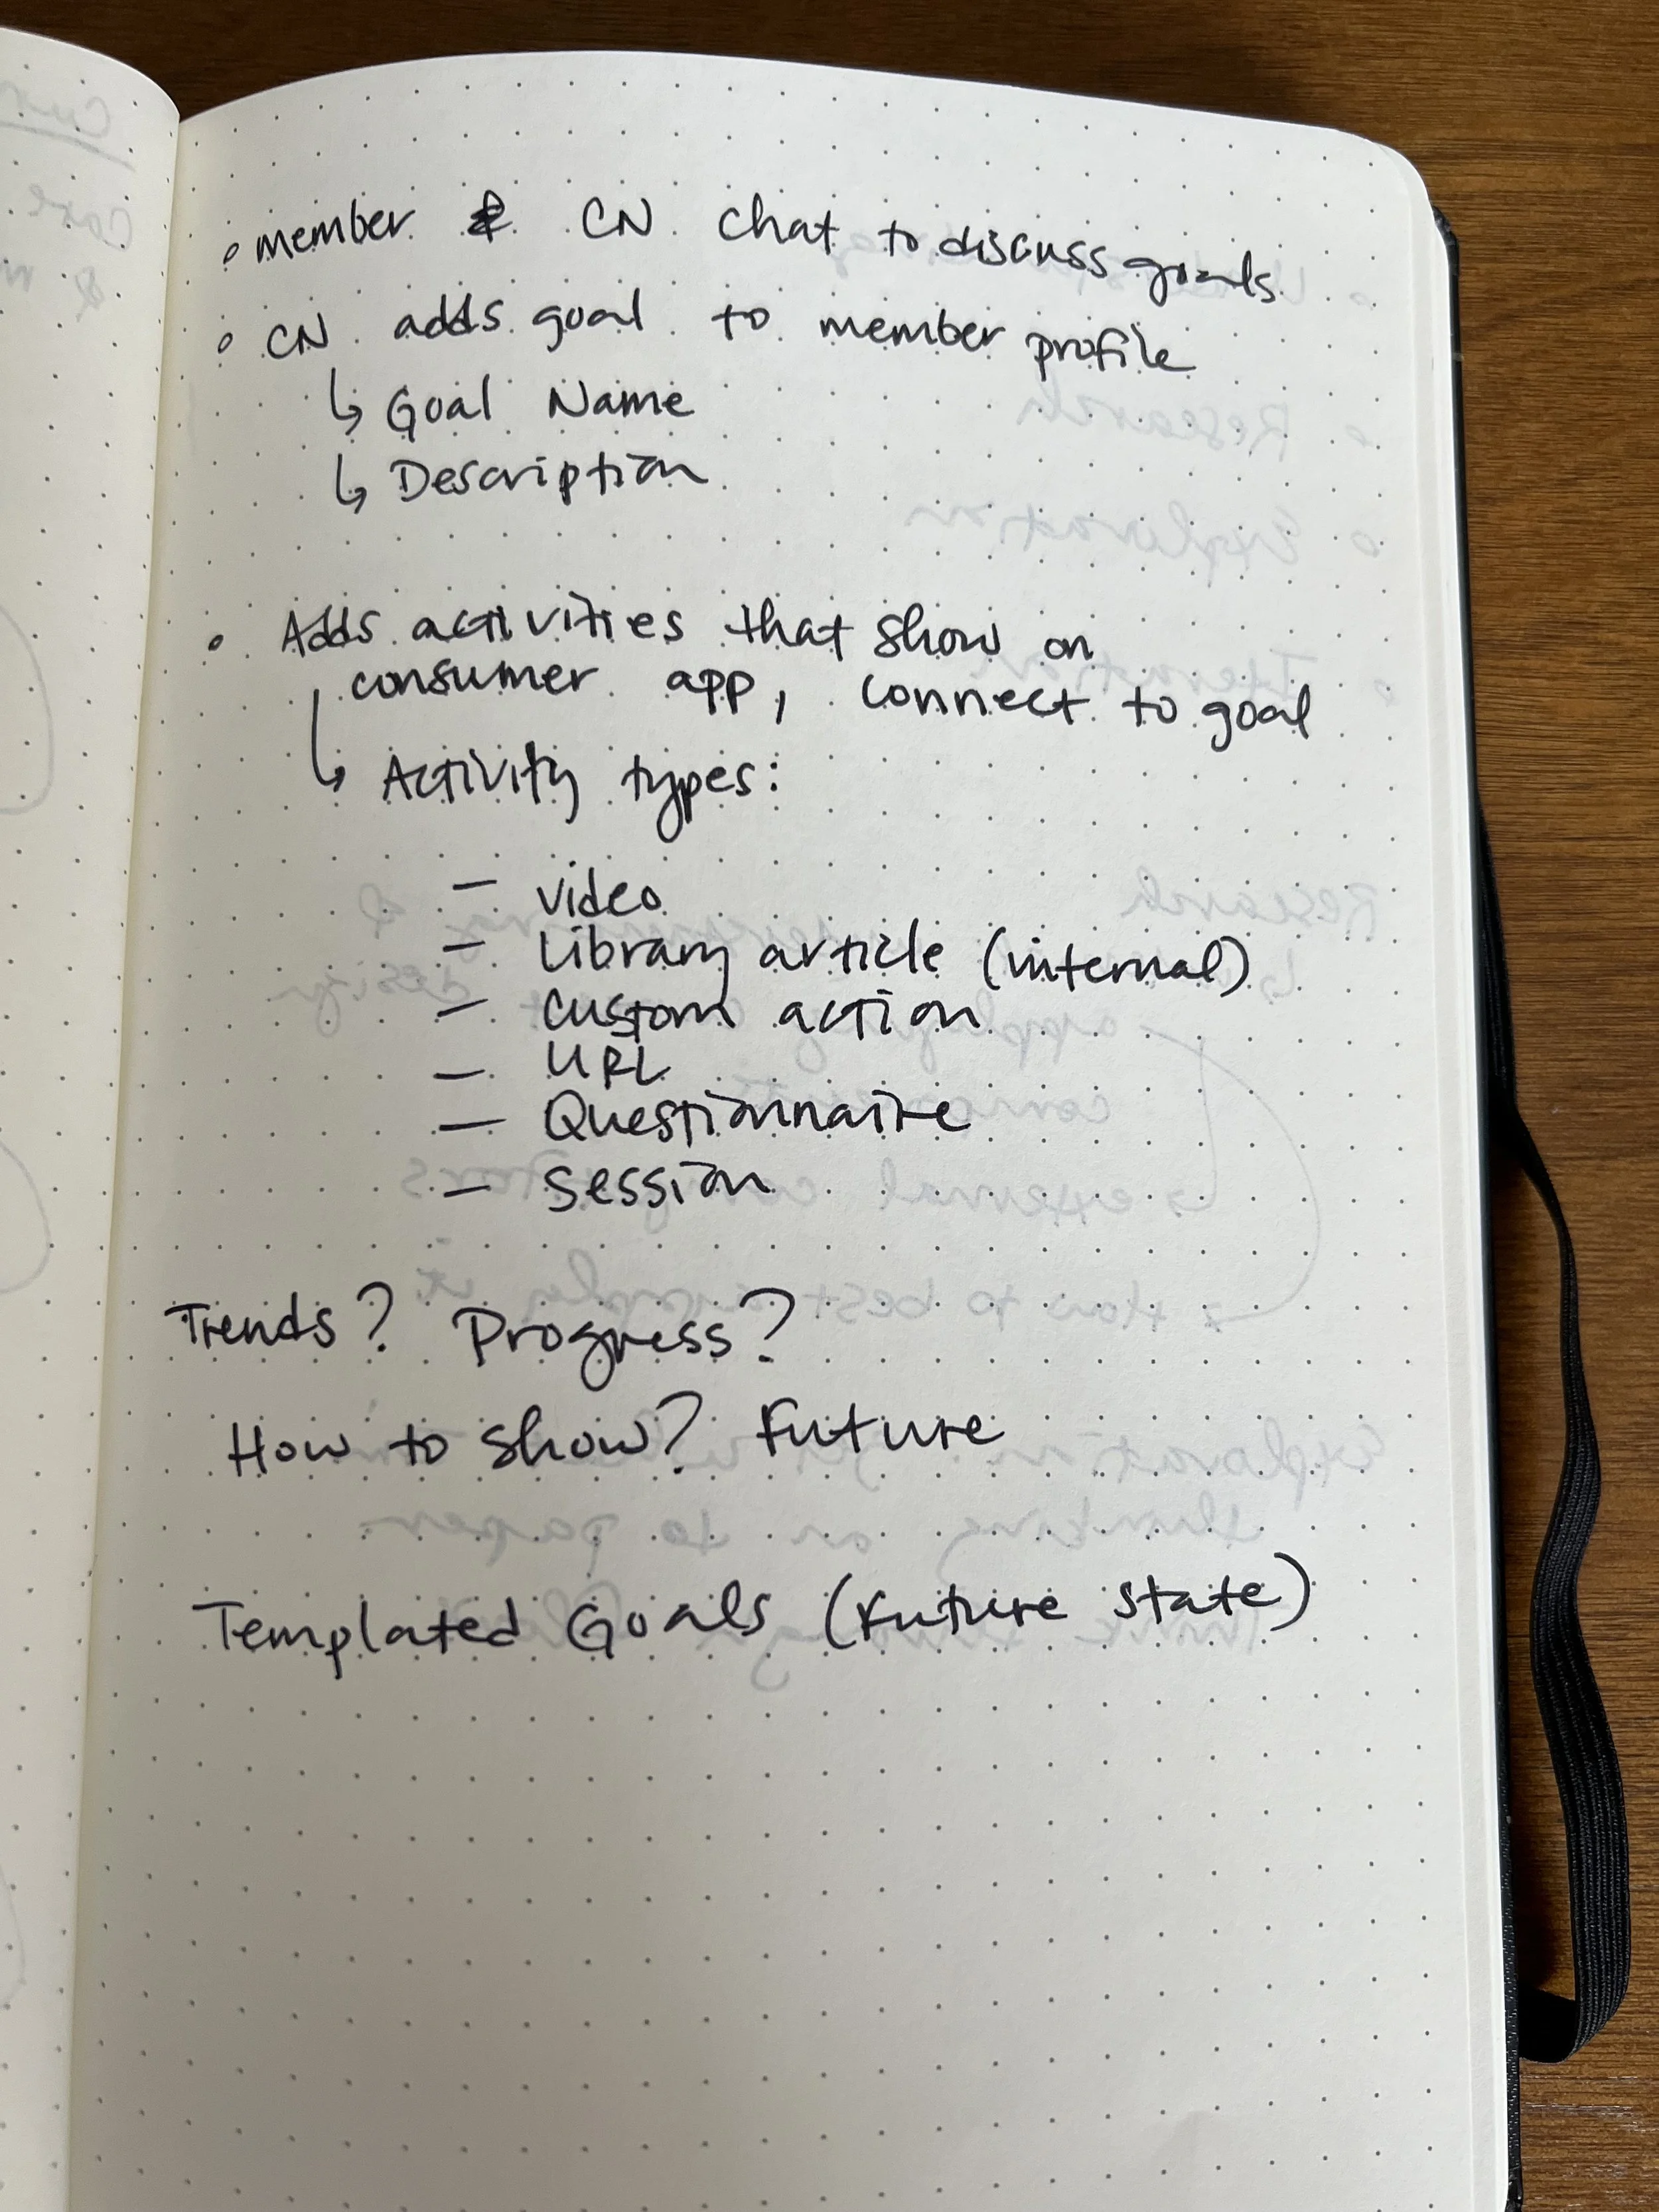 • member & CN chat to discuss goals
• CN adds goal to member profile
↳ Goal Name
↳ Description
• Adds activities that show on
consumer app, connect to goal
↳ Activity types:
– video
– Library article (internal)
– custom action
– URL
– Questionnaire
– session
Trends? Progress?
How to show? Future
Templated Goals (future state)